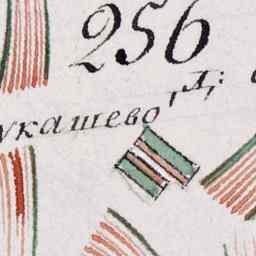 256
укашево Д: